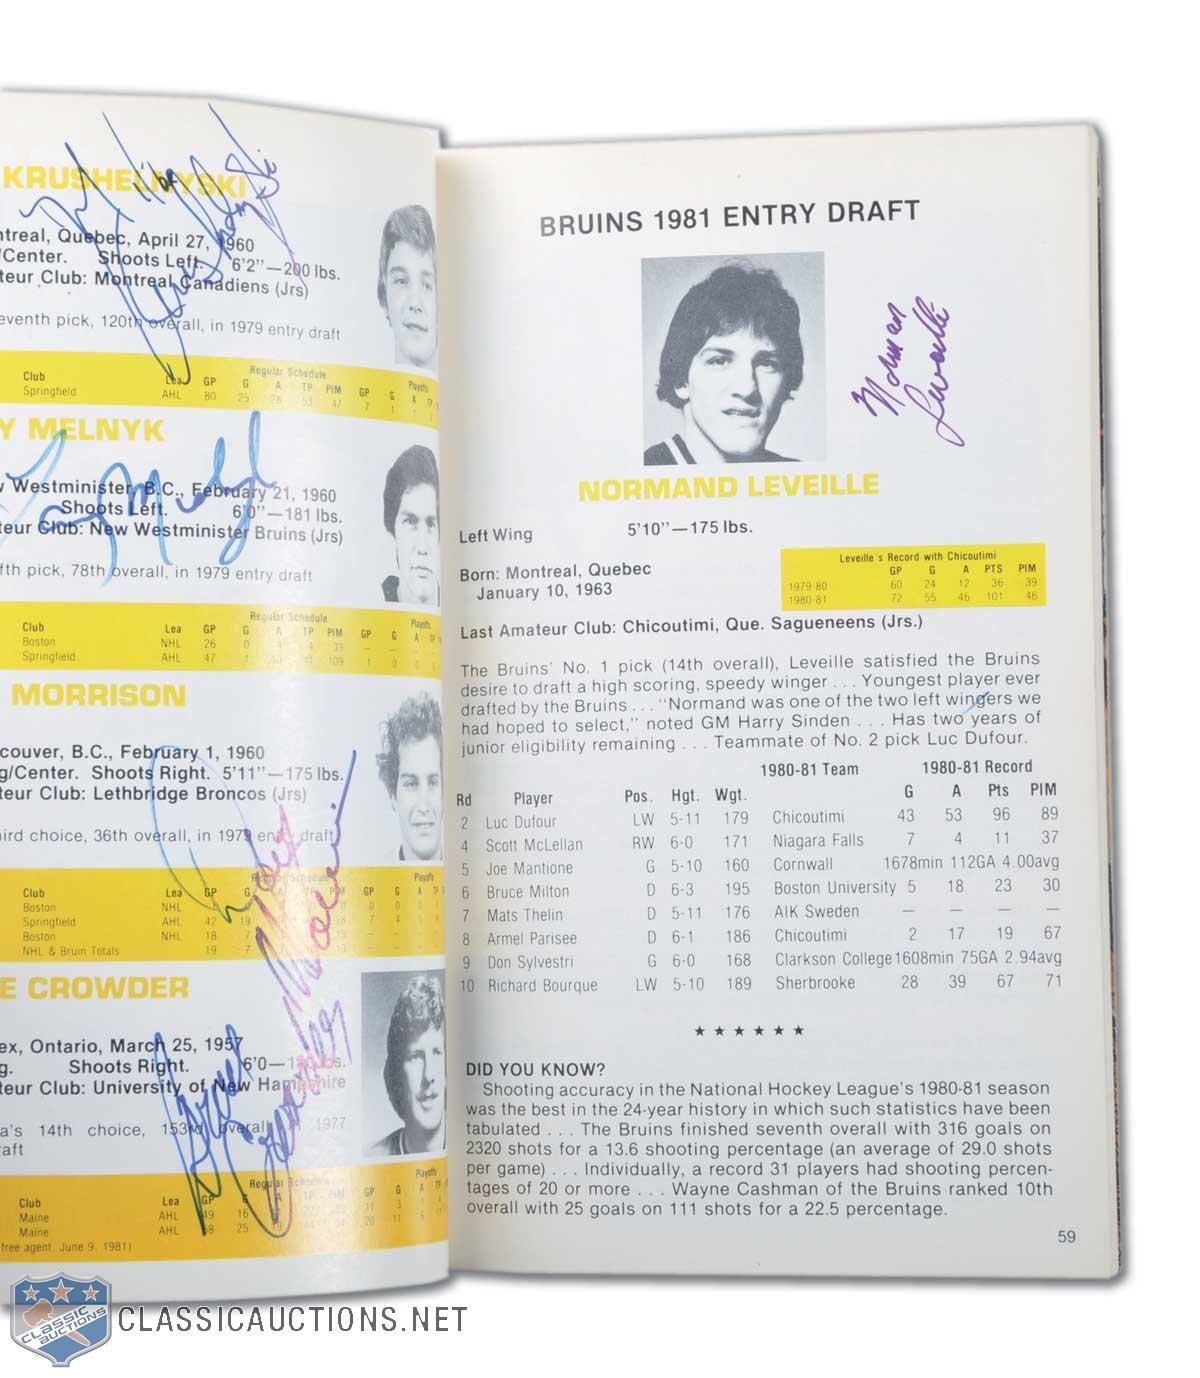 KRUSHELNYSKI
ntreal, Quebec, April 27, 1960
/Center. Shoots Left. 6'2"—200 lbs.
teur Club: Montreal Canadiens (Jrs)
eventh pick, 120th overall, in 1979 entry draft
Regular Schedule Playoffs
Club Lea GP G A TP PIM GP G A TP
Springfield AHL 80 25 28 53 47 7 1 1
Y MELNYK
Larry Melnyk
w Westminister, B.C., February 21, 1960
Shoots Left. 6'0"—181 lbs.
teur Club: New Westminister Bruins (Jrs)
fth pick, 78th overall, in 1979 entry draft
Regular Schedule Playoffs
Club Lea GP G A TP PIM GP G A TP
Boston NHL 26 0 4 4 39 — — —
Springfield AHL 47 1 109 1 0
MORRISON
couver, B.C., February 1, 1960
g/Center. Shoots Right. 5'11"—175 lbs.
teur Club: Lethbridge Broncos (Jrs)
hird choice, 36th overall, in 1979 entry draft
Regular Schedule Playoffs
Club Lea GP G A TP PIM GP G A TP
Boston NHL 0 0 0
Springfield AHL 42 19 7 4
Boston NHL 18 7
NHL & Bruin Totals 19 7
E CROWDER
Bruce Crowder
ex, Ontario, March 25, 1957
g. Shoots Right. 6'0—180 lbs.
teur Club: University of New Hampshire
a's 14th choice, 153rd overall 1977
raft
Regular Schedule Playoffs
Club Lea GP G A TP PIM GP G A TP
Maine AHL 49 16 11 3
Maine AHL 68 25 20 11
free agent, June 9, 1981)
BRUINS 1981 ENTRY DRAFT
Norman Leveille
NORMAND LEVEILLE
Left Wing 5'10"—175 lbs.
Born: Montreal, Quebec
January 10, 1963
Leveille's Record with Chicoutimi
GP G A PTS PIM
1979-80 60 24 12 36 39
1980-81 72 55 46 101 46
Last Amateur Club: Chicoutimi, Que. Sagueneens (Jrs.)
The Bruins' No. 1 pick (14th overall), Leveille satisfied the Bruins
desire to draft a high scoring, speedy winger . . . Youngest player ever
drafted by the Bruins . . . "Normand was one of the two left wingers we
had hoped to select," noted GM Harry Sinden . . . Has two years of
junior eligibility remaining . . . Teammate of No. 2 pick Luc Dufour.
1980-81 Team 1980-81 Record
Rd Player Pos. Hgt. Wgt. G A Pts PIM
2 Luc Dufour LW 5-11 179 Chicoutimi 43 53 96 89
4 Scott McLellan RW 6-0 171 Niagara Falls 7 4 11 37
5 Joe Mantione G 5-10 160 Cornwall 1678min 112GA 4.00avg
6 Bruce Milton D 6-3 195 Boston University 5 18 23 30
7 Mats Thelin D 5-11 176 AIK Sweden — — — —
8 Armel Parisee D 6-1 186 Chicoutimi 2 17 19 67
9 Don Sylvestri G 6-0 168 Clarkson College 1608min 75GA 2.94avg
10 Richard Bourque LW 5-10 189 Sherbrooke 28 39 67 71
★ ★ ★ ★ ★ ★
DID YOU KNOW?
Shooting accuracy in the National Hockey League's 1980-81 season
was the best in the 24-year history in which such statistics have been
tabulated . . . The Bruins finished seventh overall with 316 goals on
2320 shots for a 13.6 shooting percentage (an average of 29.0 shots
per game) . . . Individually, a record 31 players had shooting percen-
tages of 20 or more . . . Wayne Cashman of the Bruins ranked 10th
overall with 25 goals on 111 shots for a 22.5 percentage.
59
CLASSIC AUCTIONS
CLASSICAUCTIONS.NET